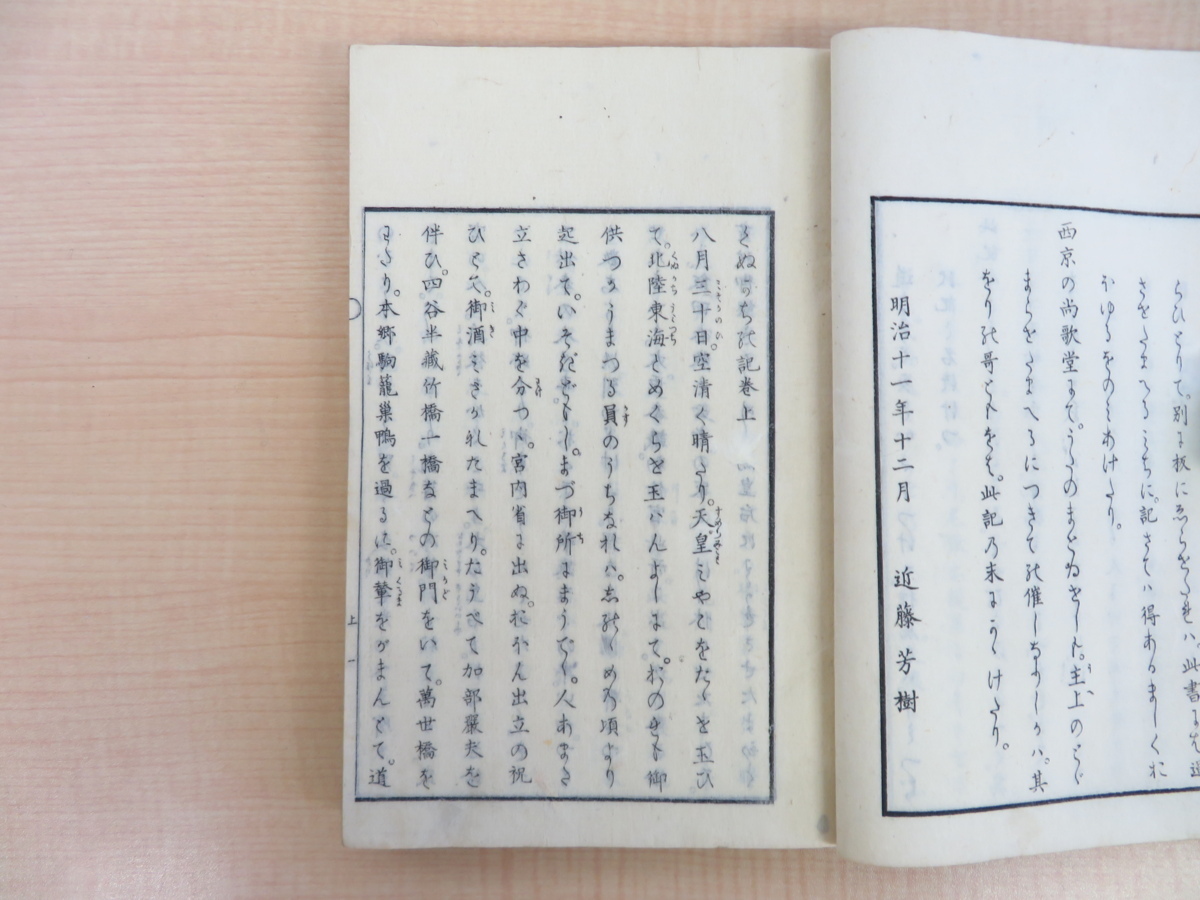 らひとりて。別に板にゑらせたれハ。此書にを
さをたまへるみちに。記さてハ得あるましくお
ほゆるをのみあけたり。
西京の尚歌堂にて。うたのまとゐせし時。主上のとぐ
まらせたまへるにつきて能催しなりしかハ。其
をり能哥ともをも。此記乃末にかくけたり。
明治十一年十二月 近藤芳樹
くぬかち能記卷上
八月三十日。空清く晴たり。天皇みやこをたゝせ玉ひ
て。北陸東海とめくらせ玉はんよしにて。おのれも御
供つかうまつる員のうちなれハ。しのゝめの頃より
起出て。いそきたちし。まづ御所にまうてし。人あまた
立さわぐ中を分つゝ。宮内省に出ぬ。おほん出立の祝
ひとて。御酒みきかれたまへり。たうべて加部嚴夫を
伴ひ。四谷半藏竹橋一橋なとの御門をいて。萬世橋を
わたり。本郷駒籠巣鴨を過るに。御輦ををがまんとて。道
上 一